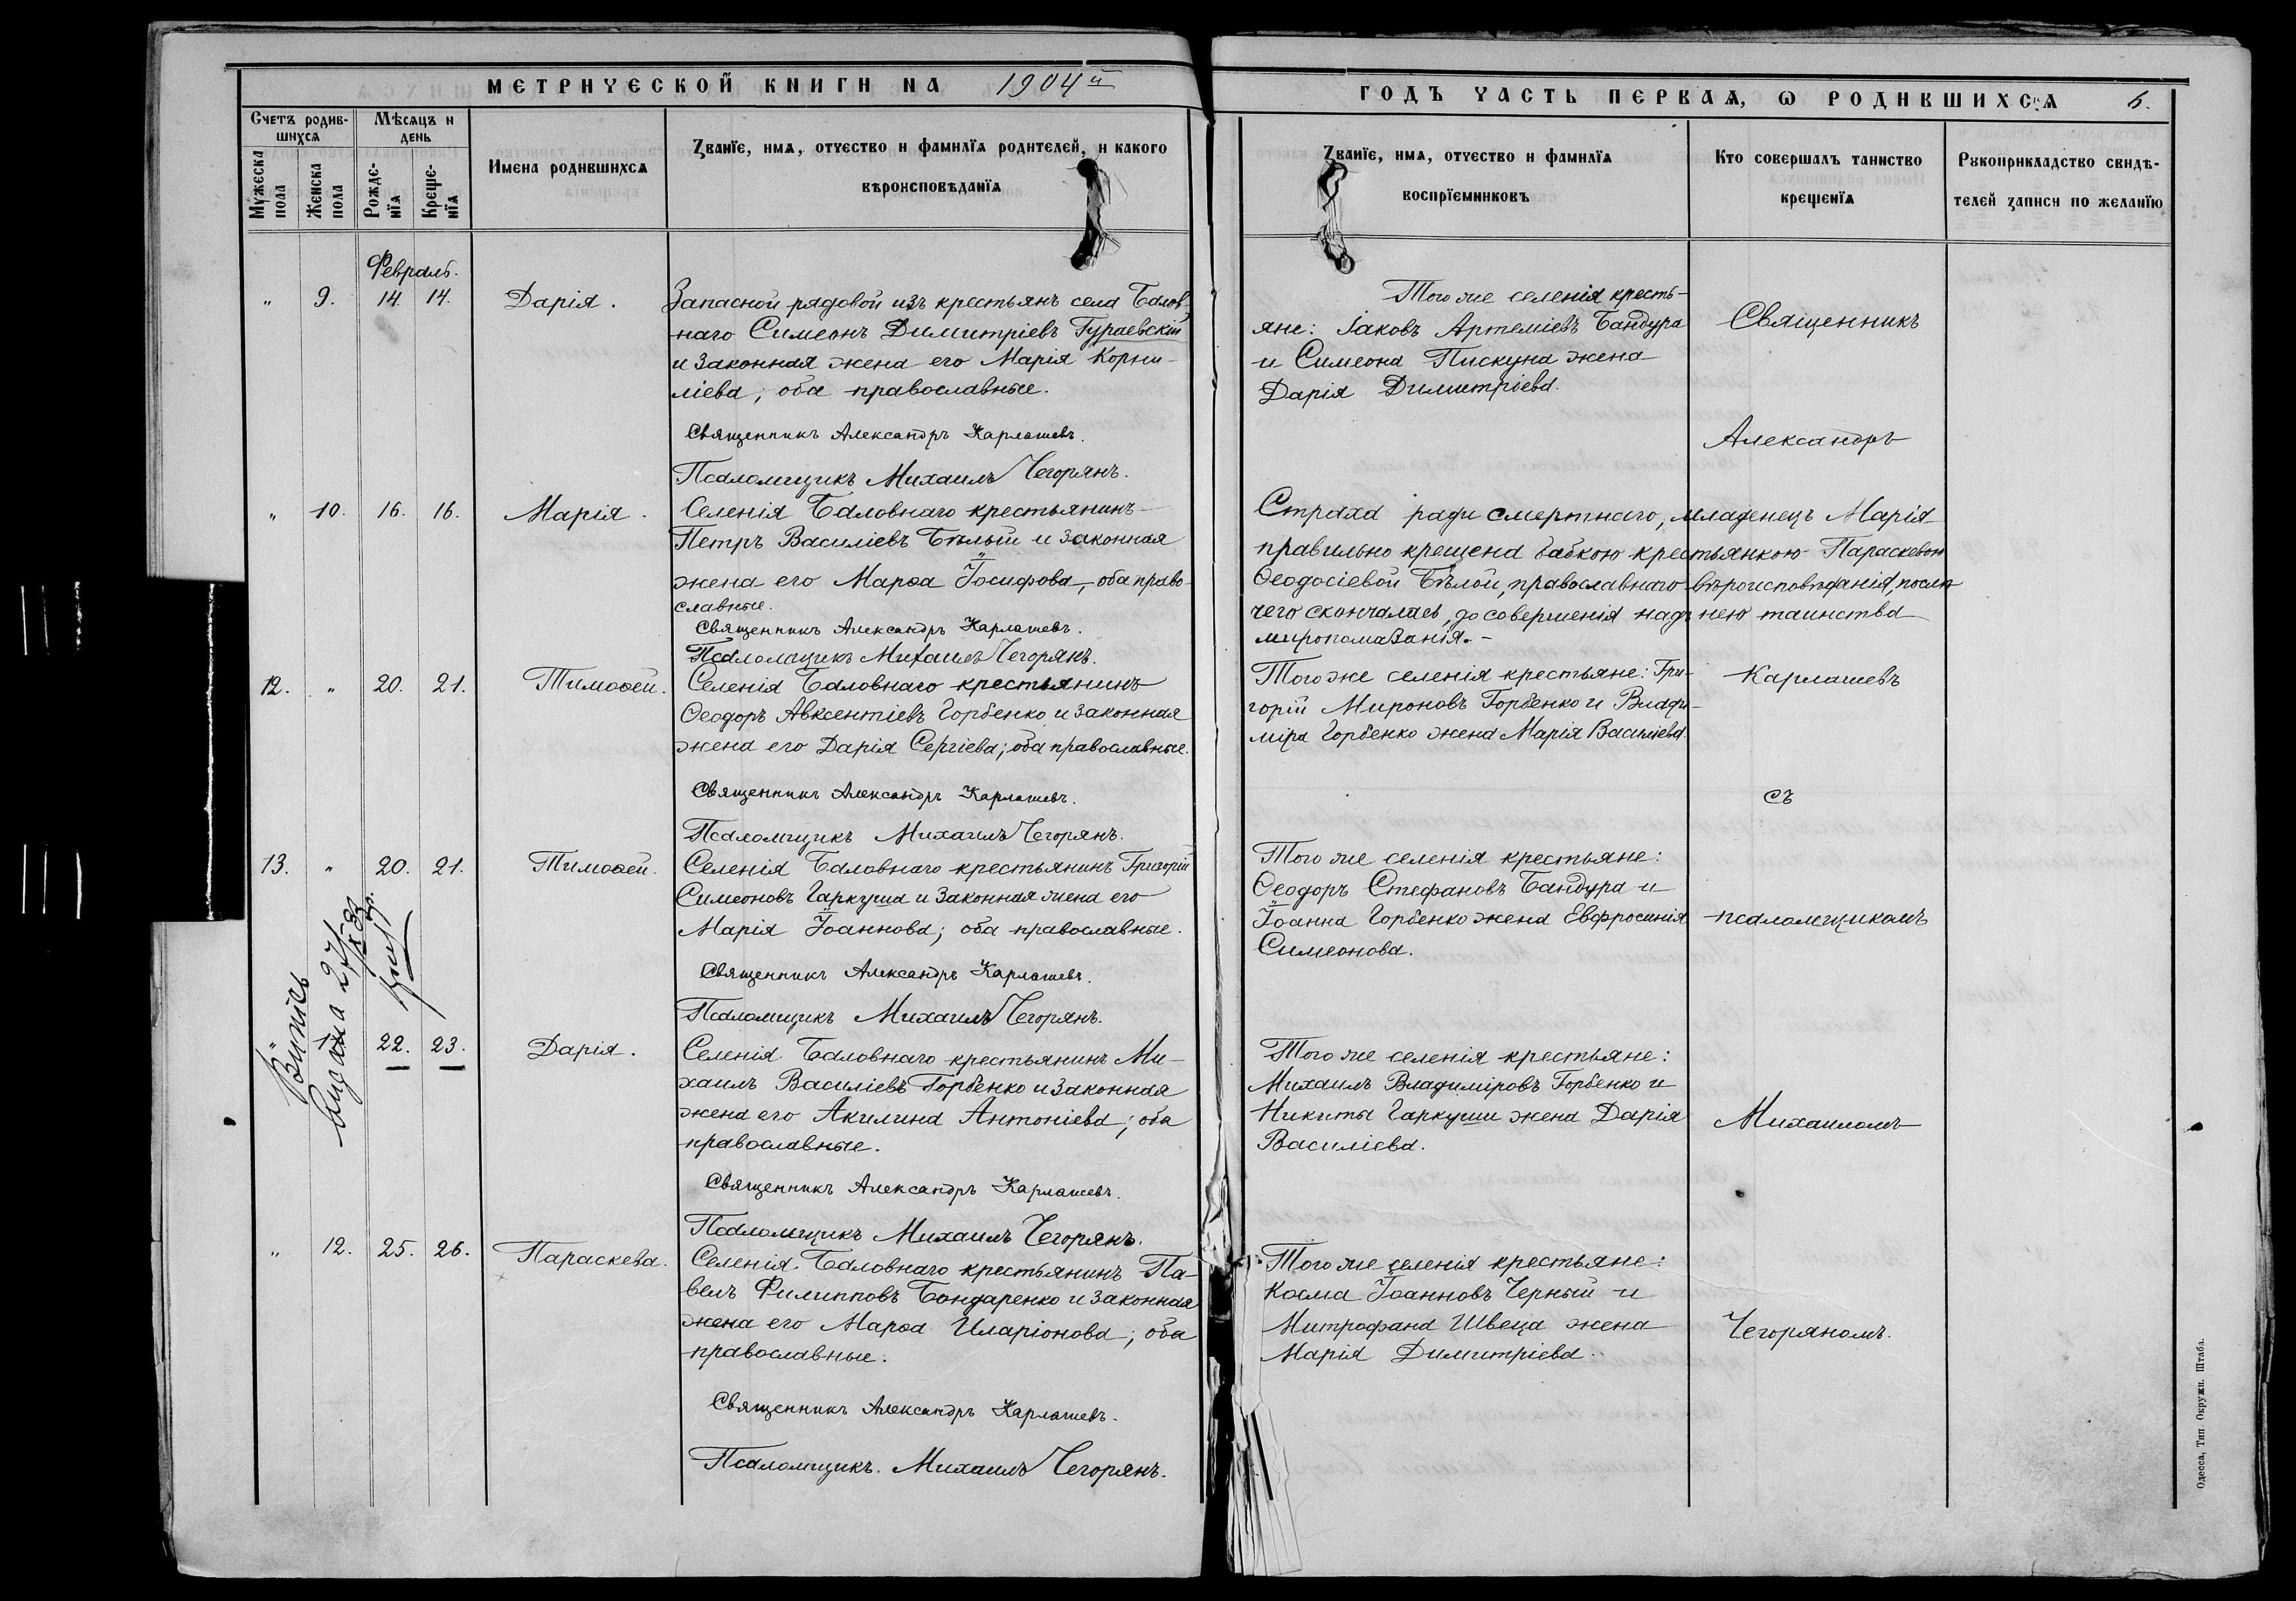 МЕТРИЧЕСКОЙ КНИГИ НА 1904й
Счетъ родив-
шихся
Мѣсяцъ и
день
Мужеска
пола
Женска
пола
Рожде-
нїя
Креще-
нїя
Имена родившихся
Званїе, имя, отчество и фамилїя родителей, и какого
вѣроисповѣданїя
Февраль.
„ 9. 14. 14. Дарія.
Запасной рядовой изъ крестьянъ села Балов-
наго Симеонъ Димитріевъ Гураевскій
и законная жена его Марія Корни-
ліева; оба православные.
Священникъ Александръ Карлашевъ.
Псаломщикъ Михаилъ Чегорянъ.
„ 10. 16. 16. Марія.
Селенія Баловнаго крестьянинъ
Петръ Василіевъ Бѣлый и законная
жена его Марѳа Іосифова, оба право-
славные.
Священникъ Александръ Карлашевъ.
Псаломщикъ Михаилъ Чегорянъ.
12. „ 20. 21. Тимоѳей.
Селенія Баловнаго крестьянинъ
Ѳеодоръ Авксентіевъ Горбенко и законная
жена его Дарія Сергіева; оба православные.
Священникъ Александръ Карлашевъ.
Псаломщикъ Михаилъ Чегорянъ.
13. „ 20. 21. Тимоѳей.
Селенія Баловнаго крестьянинъ Григорій
Симеоновъ Гаркуша и законная жена его
Марія Іоаннова; оба православные.
Священникъ Александръ Карлашевъ.
Псаломщикъ Михаилъ Чегорянъ.
Випісь
видана 27/
„ 22. 23. Дарія.
Селенія Баловнаго крестьянинъ Ми-
хаилъ Василіевъ Горбенко и законная
жена его Акилина Антоніева; оба
православные.
Священникъ Александръ Карлашевъ.
Псаломщикъ Михаилъ Чегорянъ.
„ 12. 25. 26. Параскева.
Селенія Баловнаго крестьянинъ Па-
велъ Филипповъ Бондаренко и законная
жена его Марѳа Иларіонова; оба
православные.
Священникъ Александръ Карлашевъ.
Псаломщикъ. Михаилъ Чегорянъ.
ГОДЪ ЧАСТЬ ПЕРВАЯ, Ѡ РОДИВШИХСЯ
Званїе, имя, отчество и фамилїя
воспрїемниковъ
Кто совершалъ таинство
крещенїя
Рукоприкладство свидѣ-
телей записи по желанїю
Того же селенія кресть-
яне: Іаковъ Артеміевъ Бандура
и Симеона Пискуна жена
Дарія Димитріева.
Страха ради смертнаго, младенецъ Марія
правильно крещена бабкою крестьянкою Параскевою
Ѳеодосіевой Бѣлой, православнаго вѣроисповѣданія, послѣ
чего скончалась, до совершенія надъ нею таинства
миропомазанія.-
Того же селенія крестьяне: Гри-
горій Мироновъ Горбенко и Влади-
міра Горбенко жена Марія Василіева.
Того же селенія крестьяне:
Ѳеодоръ Стефановъ Бандура и
Іоанна Горбенко жена Евфросинія
Симеонова.
Того же селенія крестьяне:
Михаилъ Владиміровъ Горбенко и
Никиты Гаркуши жена Дарія
Василіева.
Того же селенія крестьяне:
Косма Іоанновъ Черный и
Митрофана Швеца жена
Марія Димитріева.
Священникъ
Александръ
Карлашевъ
съ
псаломщикомъ
Михаиломъ
Чегоряномъ.
Одесса, Тип. Окружн. Штаба.